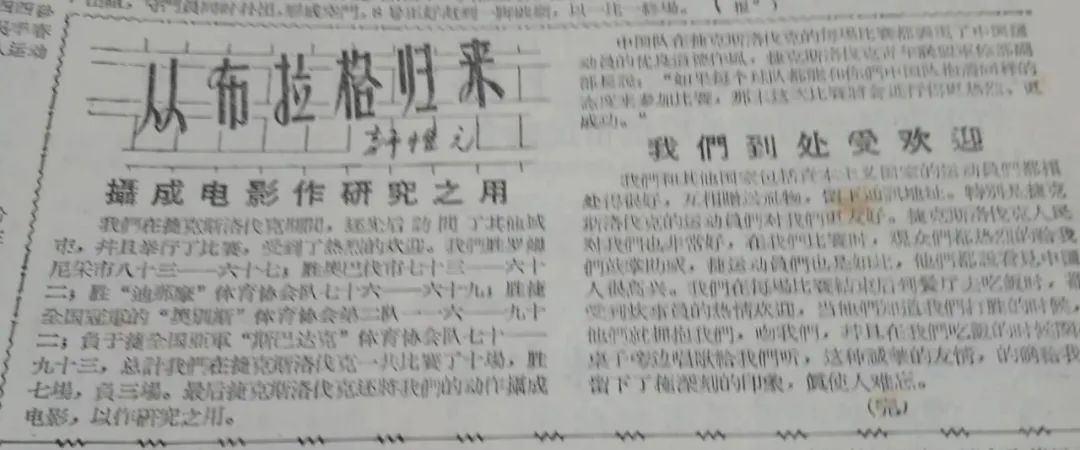 从布拉格归来
攝成电影作研究之用
我們在捷克斯洛伐克期間，还先后訪問了其他城
市，并且举行了比賽，受到了熱烈的欢迎。我們胜罗
尼采市八十三——六十七；胜奧巴伐市七十三——六十
二；胜“迪那摩”体育协会队七十六——六十九；胜捷
全国冠軍的“奧斯”体育协会第二队一一六——九十
二；負于捷全国亞軍“斯巴达克”体育协会队七十——
九十三，总計我們在捷克斯洛伐克一共比賽了十場，胜
七場，負三場。最后捷克斯洛伐克还將我們的动作攝成
电影，以作研究之用。
中国队在捷克斯洛伐克的每場比賽都表現了中国运
动員的优良道德作風，捷克斯洛伐克青年联盟軍体部副
部長說：“如果每个球队都能和你們中国队抱着同样的
态度来参加比賽，那末这次比賽將会进行得更热烈，更
成功。”
我們到处受欢迎
我們和其他国家包括資本主义国家的运动員們都相
处得很好，互相贈送礼物，留下通訊地址。特別是捷克
斯洛伐克的运动員們对我們更友好。捷克斯洛伐克人民
对我們也非常好，在我們比賽时，观众們都热烈的給我
們鼓掌助威，捷运动員們也是如此，他們都說看見中国
人很高兴。我們在每場比賽結束后到餐厅去吃飯时，
受到炊事員的热情欢迎，当他們知道我們打胜的时候，
他們就拥抱我們，吻我們，并且在我們吃飯的时候
桌子旁边唱歌給我們听，这种誠摯的友情，的确給我
留下了極深刻的印象，眞使人难忘。
（完）